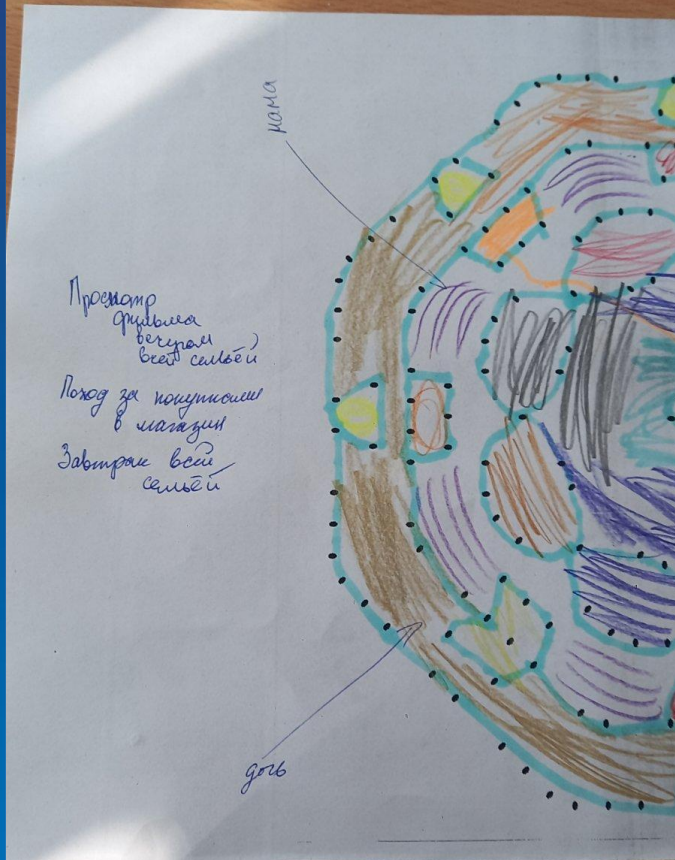 мама
Просмотр
фильма
вечером
всей семьёй
Поход за покупками
в магазин
Завтрак всей
семьёй
дочь